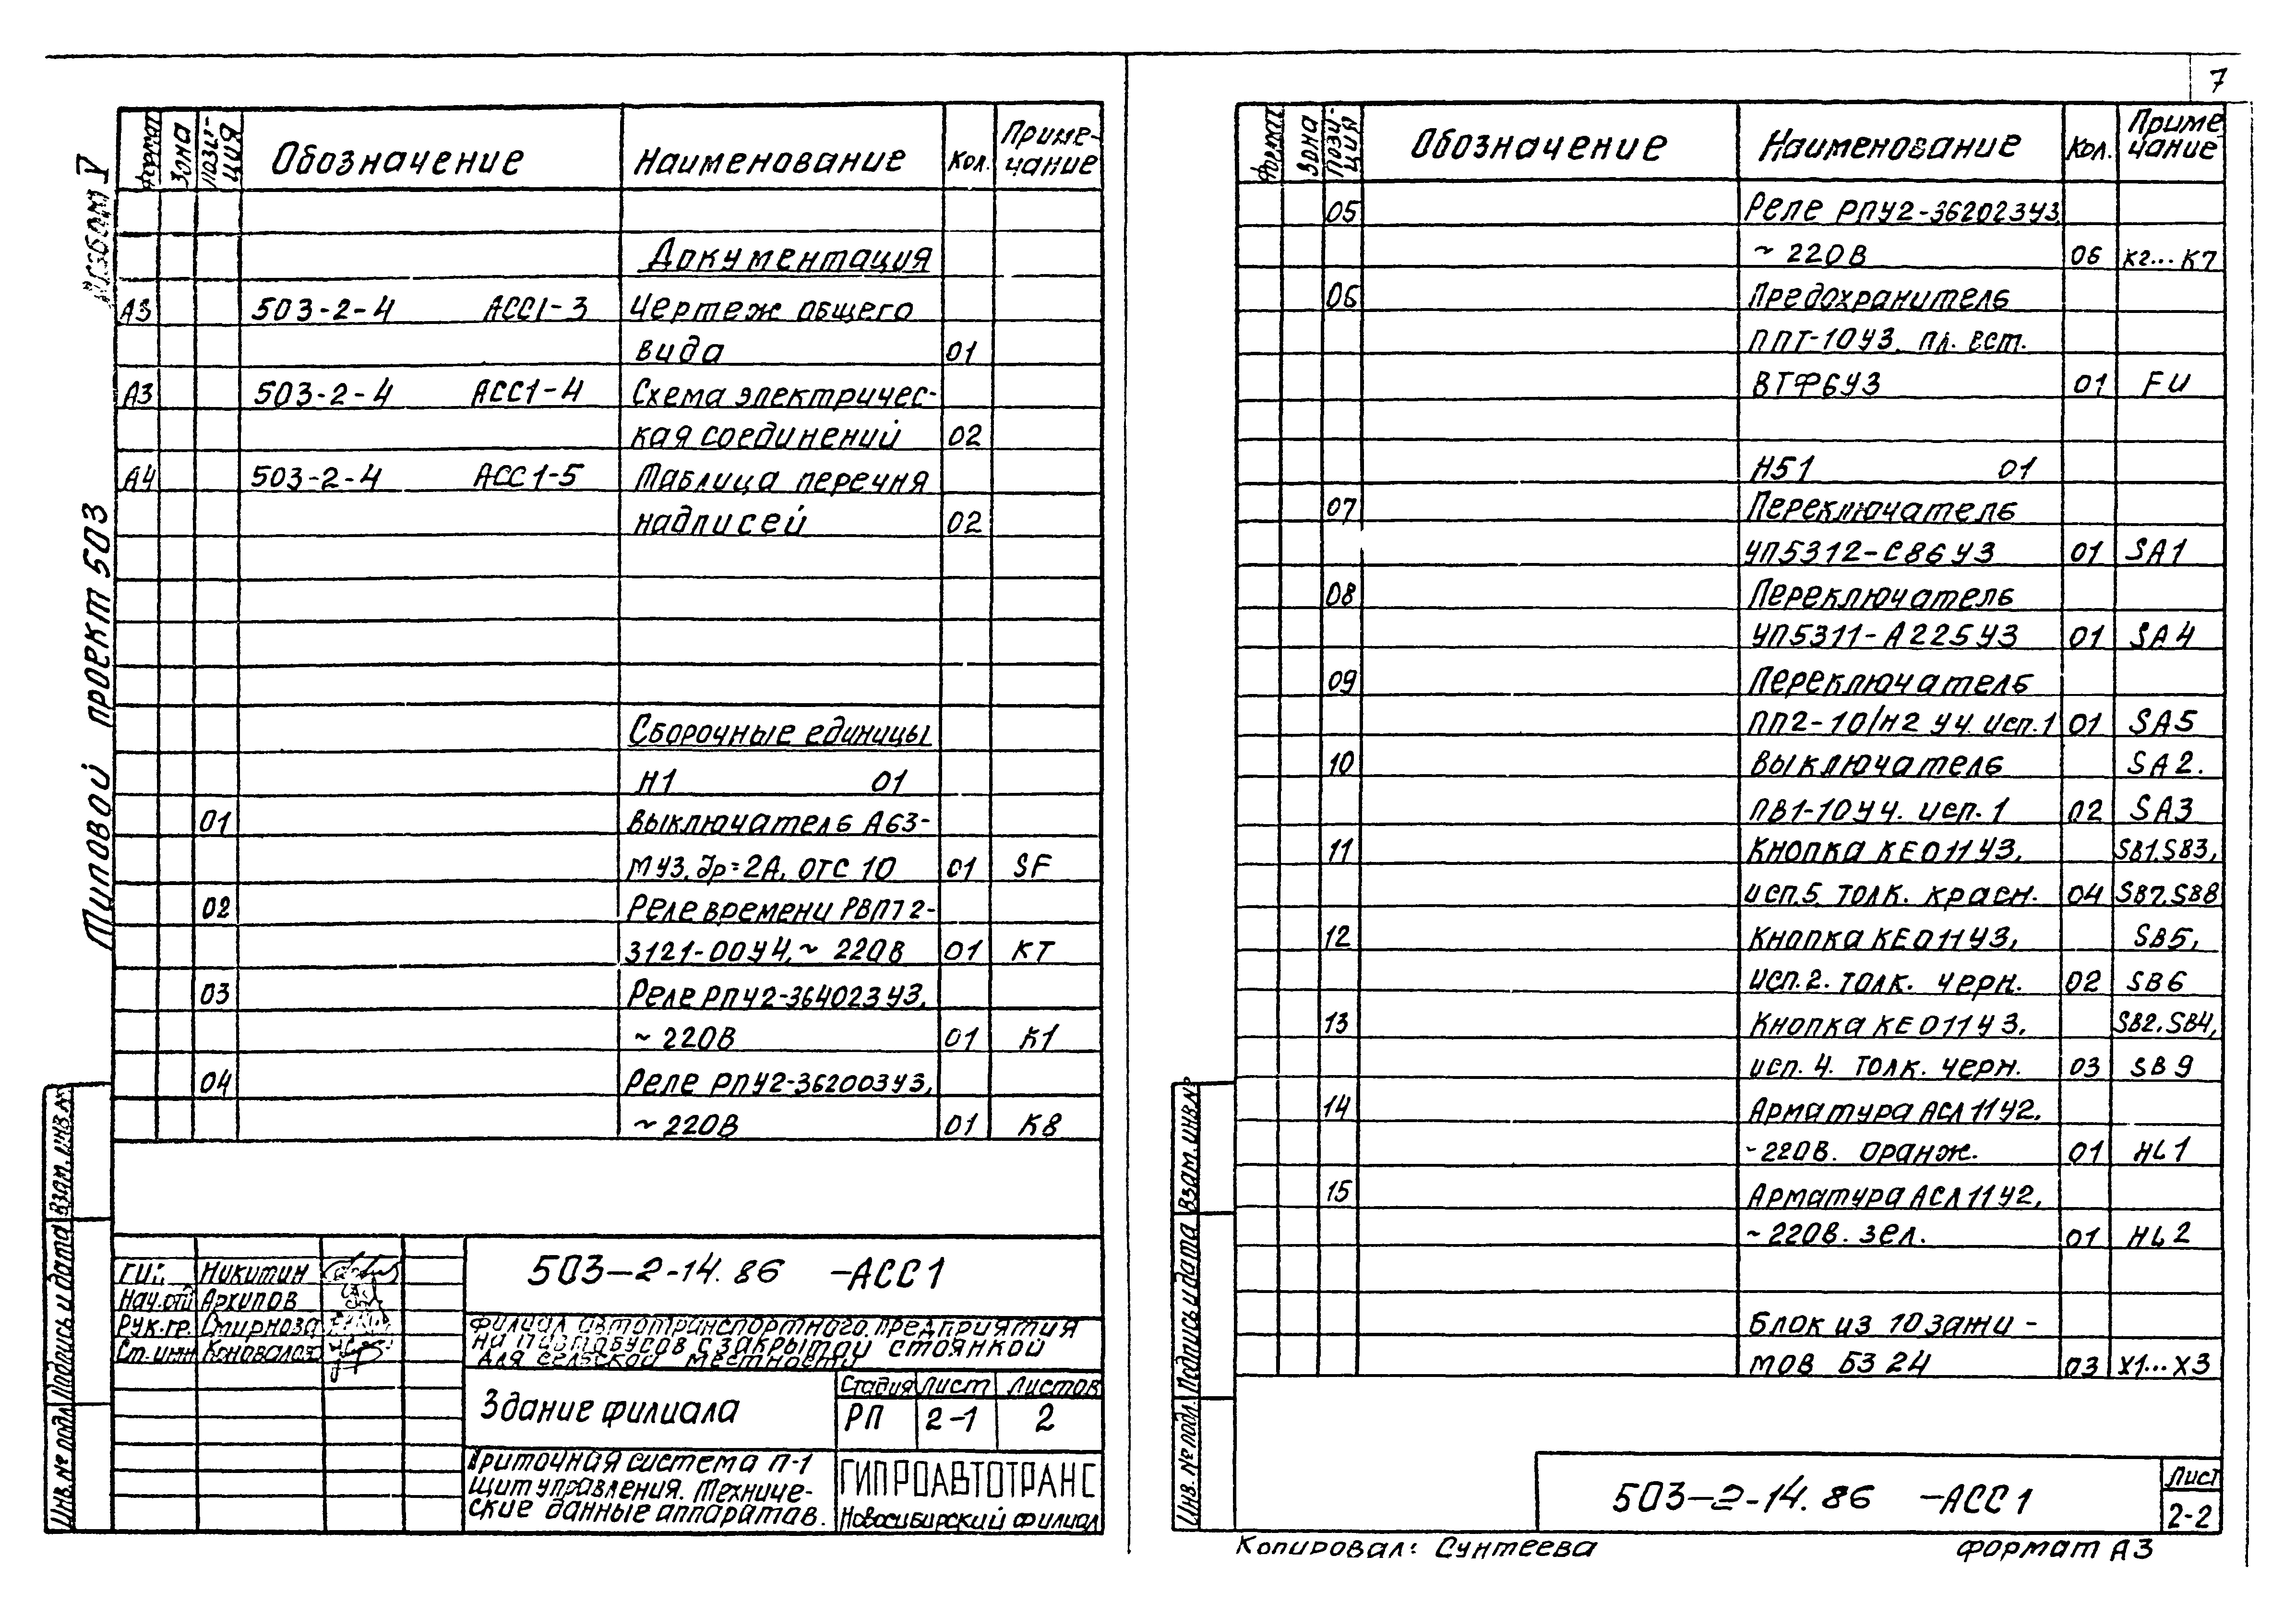 7
Альбом V
Типовой проект 503
Формат Зона Пози-ция Обозначение Наименование Кол. Приме-чание
Документация
А3 503-2-4 АСС1-3 Чертеж общего
вида 01
А3 503-2-4 АСС1-4 Схема электричес-
кая соединений 02
А4 503-2-4 АСС1-5 Таблица перечня
надписей 02
Сборочные единицы
Н1 01
01 Выключатель А63-
МУЗ, Jр=2А, ОТС 10 01 SF
02 Реле времени РВП72-
3121-00У4, ~ 220В 01 КТ
03 Реле РПУ2-364023У3,
~ 220В 01 К1
04 Реле РПУ2-362003У3,
~ 220В 01 К8
Взам. инв.№
Подпись и дата
Инв. № подл.
ГИП Никитин
Нач.отд Архипов
Рук.гр. Смирнова
Ст.инж Коновалов
503-2-14.86 -АСС1
Филиал автотранспортного предприятия
на автобусов с закрытой стоянкой
для сельской местности
Здание филиала
Стадия Лист Листов
РП 2-1 2
Приточная система П-1
Щит управления. Техниче-
ские данные аппаратов.
ГИПРОАВТОТРАНС
Новосибирский филиал
Формат Зона Пози-ция Обозначение Наименование Кол. Приме чание
05 Реле РПУ2-362023У3
~ 220В 06 К2...К7
06 Предохранитель
ППТ-10У3, пл. вст.
ВТФ6У3 01 FU
Н51 01
07 Переключатель
УП5312-С86У3 01 SA1
08 Переключатель
УП5311-А225У3 01 SA4
09 Переключатель
ПП2-10/Н2 У4. исп.1 01 SA5
10 Выключатель SA2.
ПВ1-10У4. исп. 1 02 SA3
11 Кнопка КЕ011У3, SB1.SB3,
исп.5. толк. красн. 04 SB7.SB8
12 Кнопка КЕ011У3, SB5,
исп.2. толк. черн. 02 SB6
13 Кнопка КЕ011У3. SB2.SB4,
исп. 4. толк. черн. 03 SB9
14 Арматура АСЛ11У2.
~220В. оранж. 01 HL1
15 Арматура АСЛ11У2,
~ 220В. зел. 01 HL2
Блок из 10 зажи-
мов БЗ 24 03 Х1...Х3
Взам. инв.№
Подпись и дата
Инв. № подл.
503-2-14.86 -АСС1
Лист
2-2
Копировал: Сунтеева Формат А3